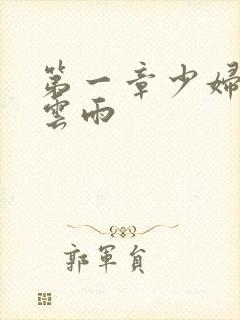 第一章少婦
雲雨
郭軍負